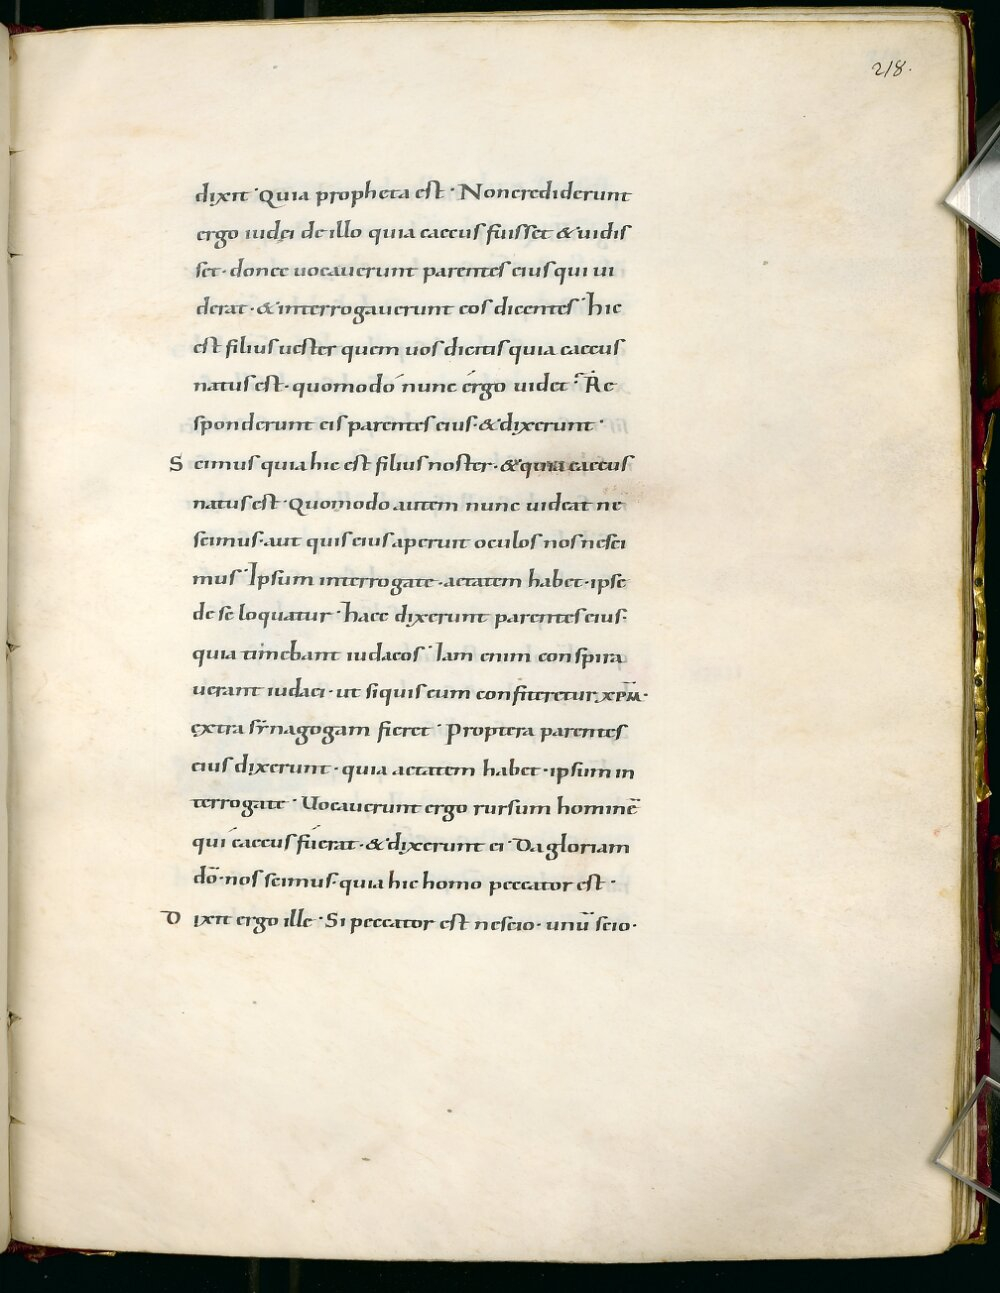 218.
dixit · Quia propheta est · Non crediderunt
ergo iudęi de illo quia caecus fuisset & uidis
set · donec uocauerunt parentes eius qui ui
derat · & interrogauerunt eos dicentes · hic
est filius uester quem uos dicitis quia caecus
natus est · quomodo nunc ergo uidet · Re
sponderunt eis parentes eius · & dixerunt ·
Scimus quia hic est filius noster · & quia caecus
natus est · Quomodo autem nunc uideat ne
scimus · aut quis eius aperuit oculos nos nesci
mus · Ipsum interrogate · aetatem habet · ipse
de se loquatur · haec dixerunt parentes eius ·
quia timebant iudaeos · Iam enim conspira
uerant iudaei · ut si quis eum confiteretur xp̄m ·
extra synagogam fieret · Propterea parentes
eius dixerunt · quia aetatem habet · ipsum in
terrogate · Uocauerunt ergo rursum hominē
qui caecus fuerat · & dixerunt ei · Da gloriam
dō · nos scimus · quia hic homo peccator est ·
Dixit ergo ille · Si peccator est nescio · unū scio ·